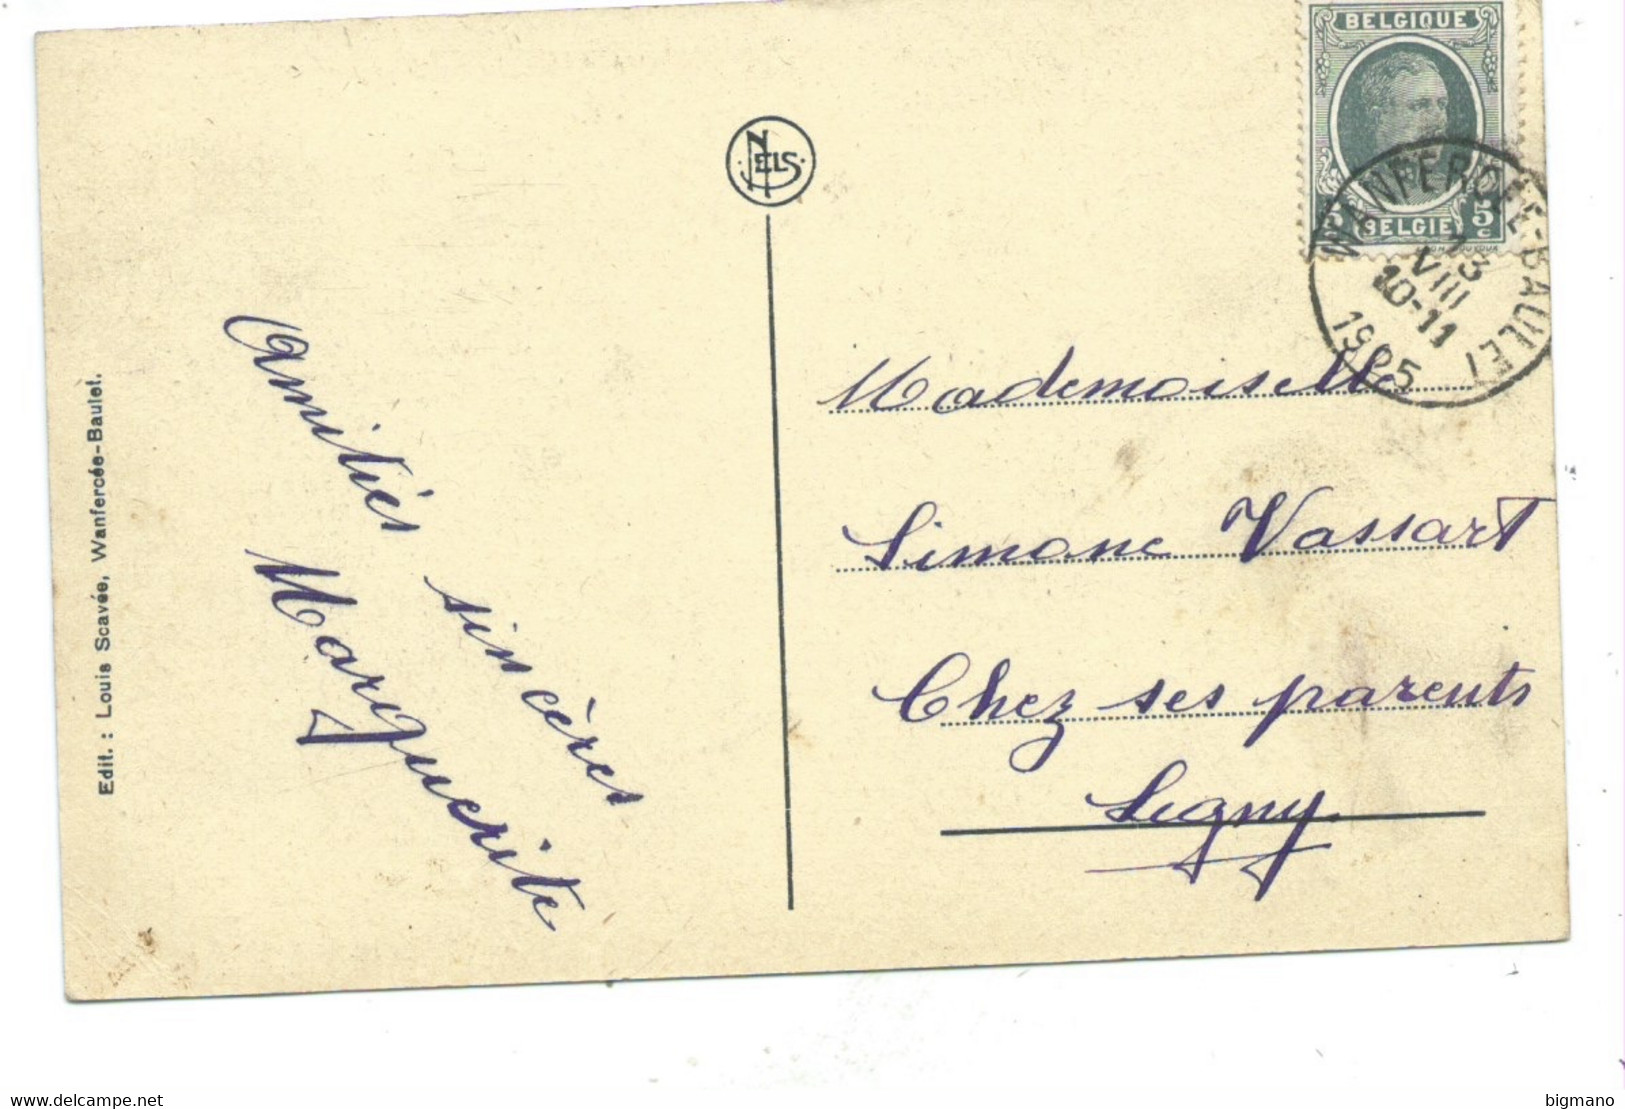 BELGIQUE
5 5c
BELGIË
WANFERCÉE-BAULET
13
VIII
10-11
1925
NELS
Edit. : Louis Scavée, Wanfercée-Baulet.
Amitiés sincères
Marguerite
Mademoiselle
Simone Vassart
Chez ses parents
Ligny
www.delcampe.net
bigmano